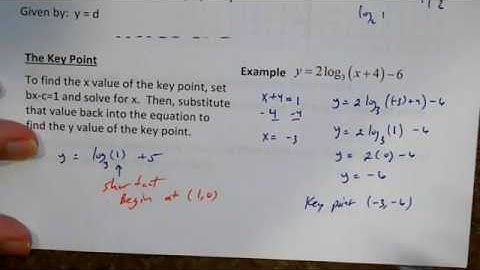 Given by: y = d
The Key Point
To find the x value of the key point, set
bx-c=1 and solve for x. Then, substitute
that value back into the equation to
find the y value of the key point.
y = log₃(1) + 5
shortcut
Begin at (1,0)
Example y = 2log₃(x+4)−6
x+4 = 1
-4 -4
x = -3
y = 2 log₃(-3+4) - 6
y = 2 log₃(1) - 6
y = 2(0) - 6
y = -6
Key point (-3,-6)